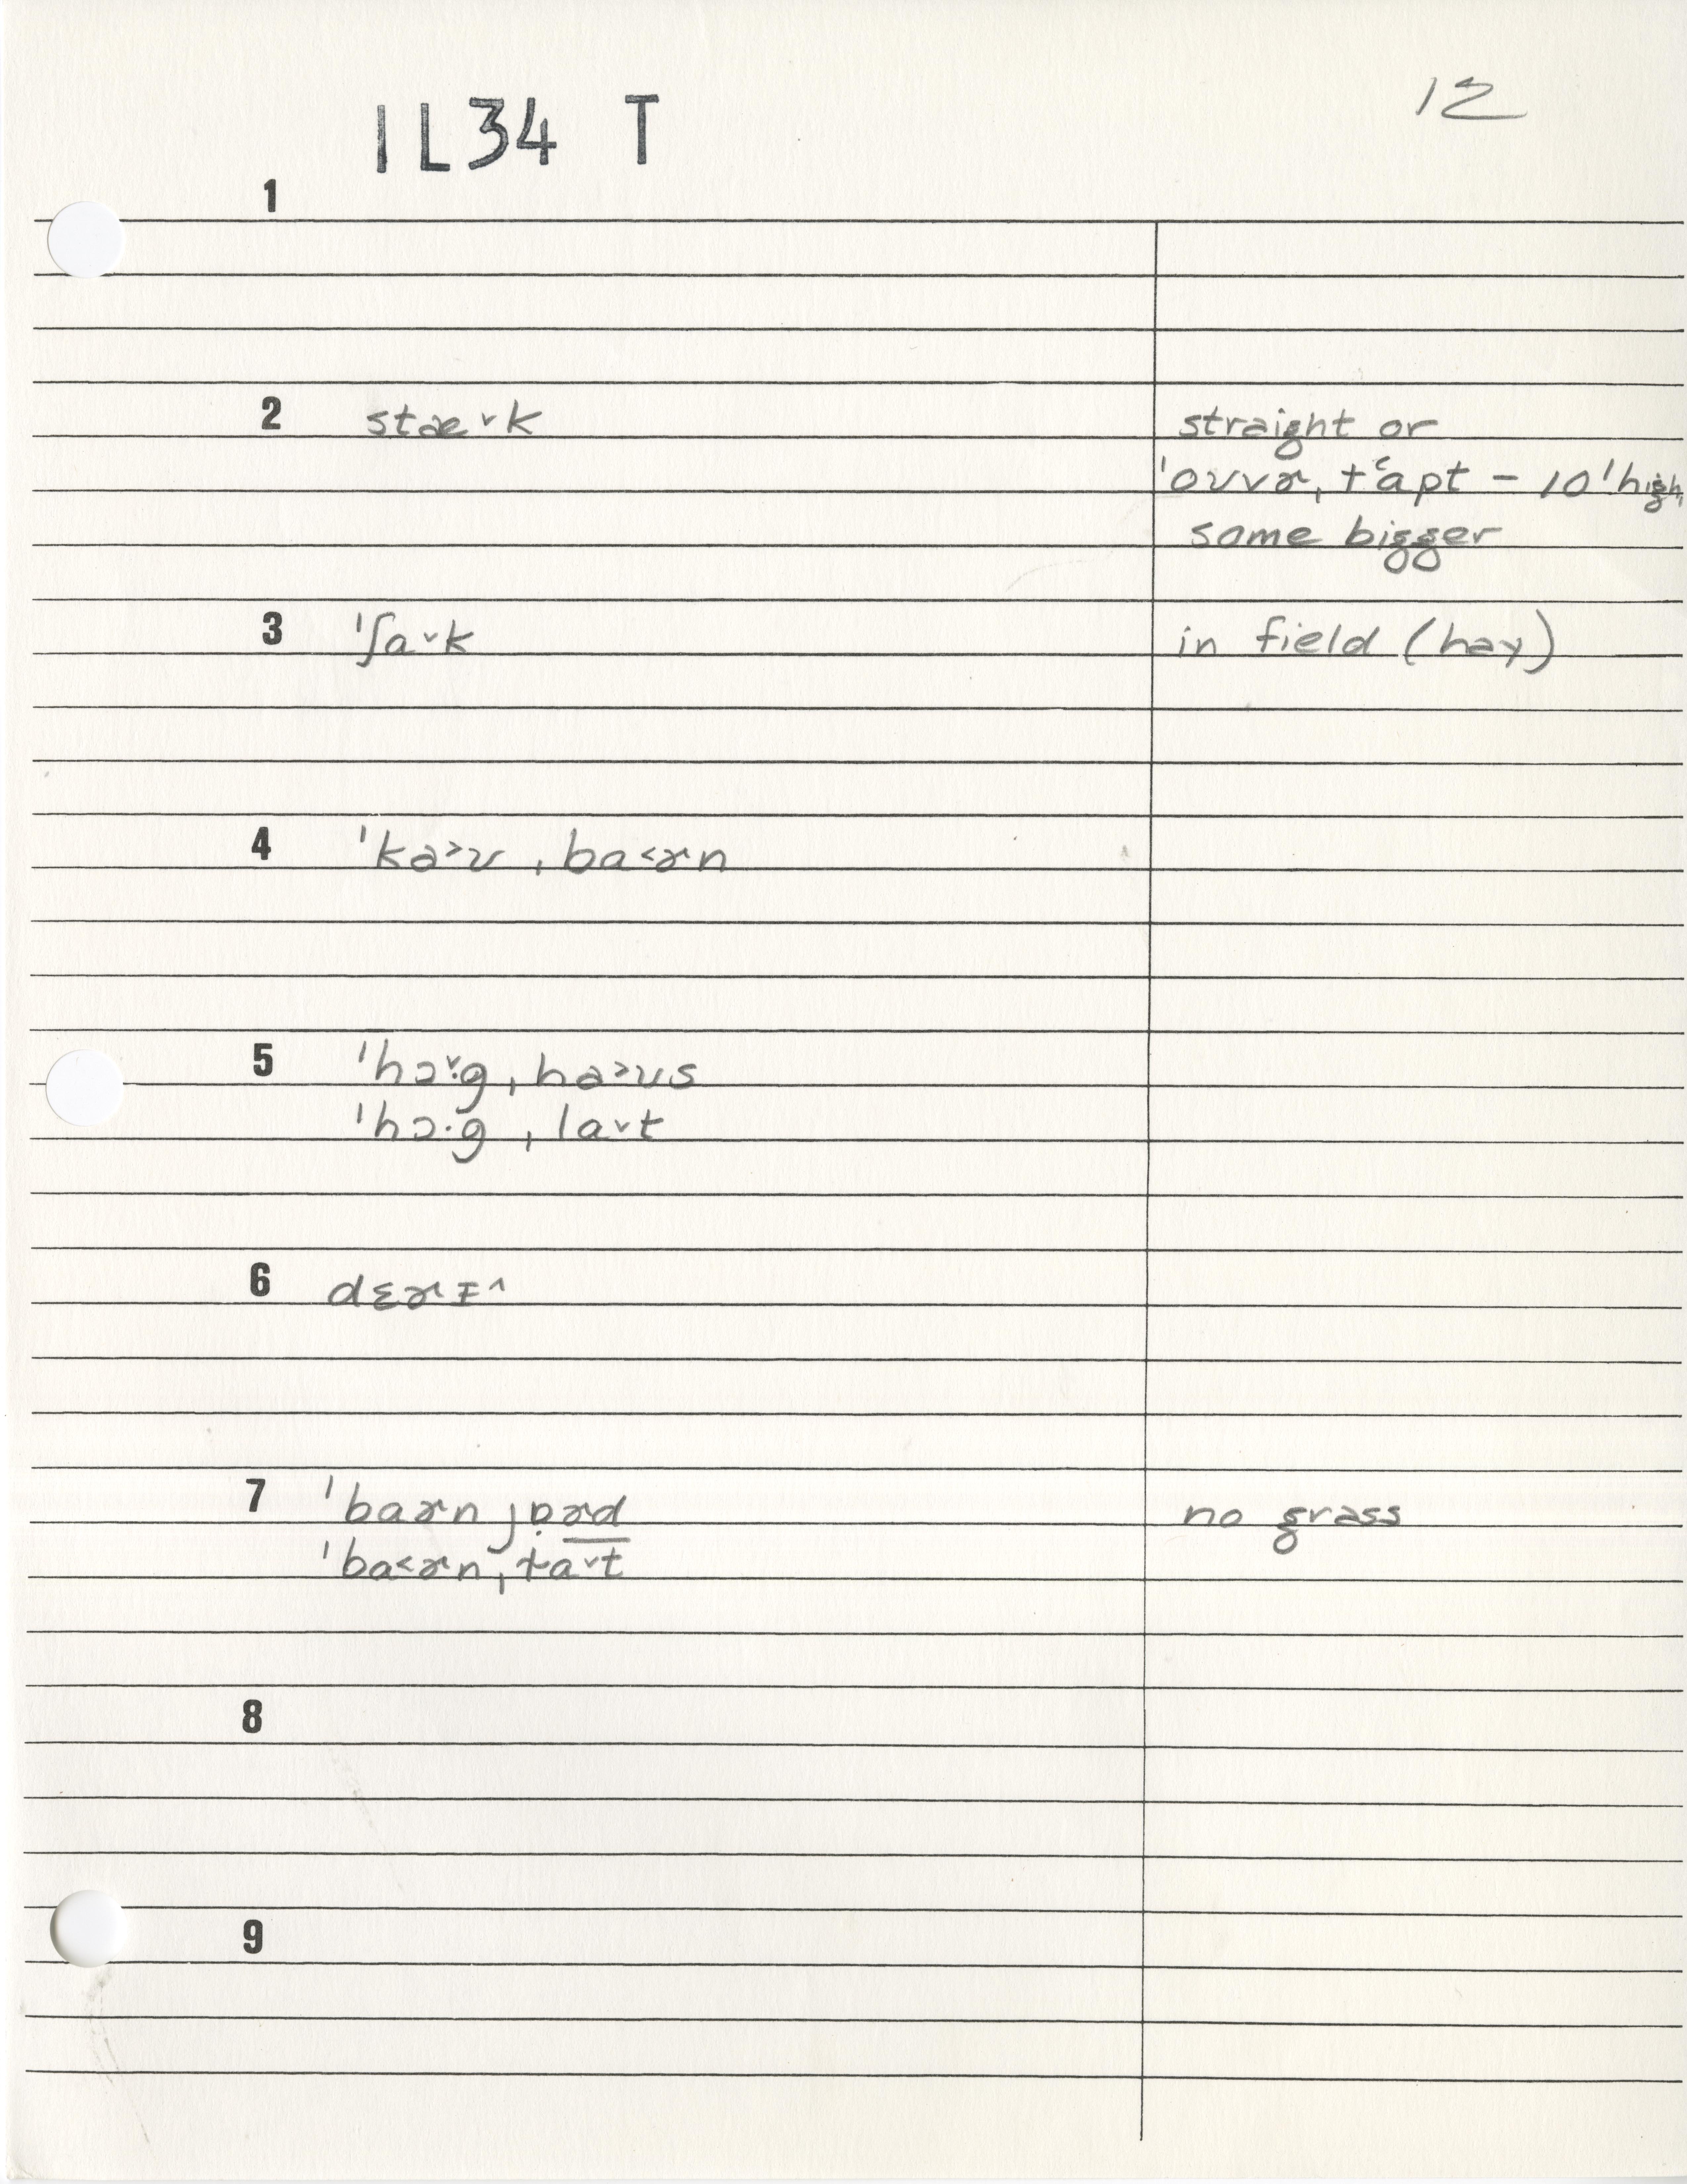 IL34 T
12
1
2 stæ˅k straight or
ˈoʊvɚˌtʿapt – 10' high,
some bigger
3 ˈʃa˅k in field (hay)
4 ˈka˃ʊˌba˂ɚn
5 ˈhɔ˅·gˌha˃ʊs
ˈhɔ·gˌla˅t
6 dɛɚɪ˄
7 ˈbaɚn jɒɚd no grass
ˈba˂ɚnˌla˅t
8
9